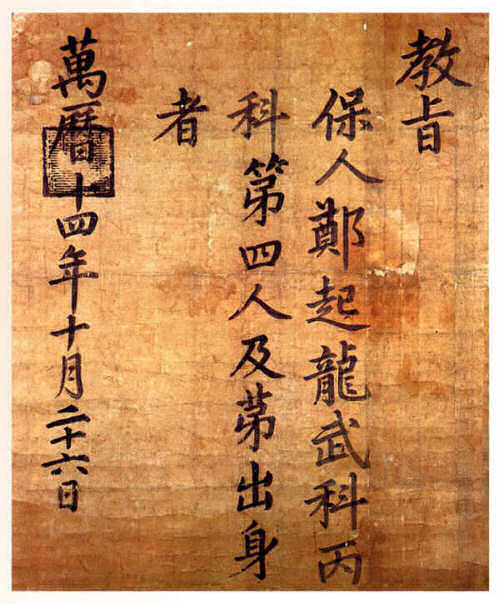 教旨
保人鄭起龍武科丙
科第四人及苐出身
者
萬曆十四年十月二十六日